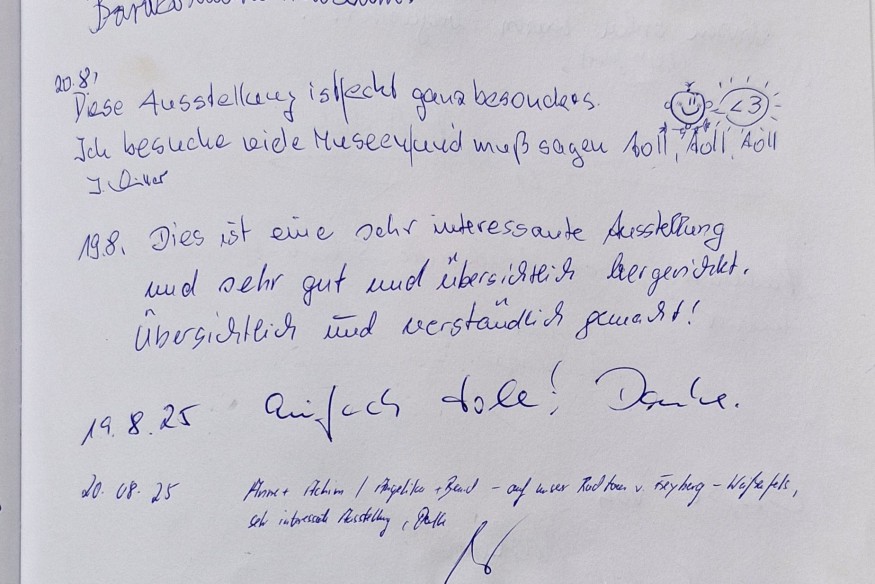 20.8.
Diese Ausstellung ist echt ganz besonders. <3
Ich besuche viele Museen und muß sagen toll, toll, toll
19.8. Dies ist eine sehr interessante Ausstellung
und sehr gut und übersichtlich hergerichtet.
Übersichtlich und verständlich gemacht!
19.8.25 Einfach tolle! Danke.
20.08.25 Anne + Achim / Angelika + Bernd - auf unser Radtour v. Freyberg - Weißenfels,
Sehr interessante Ausstellung, Danke